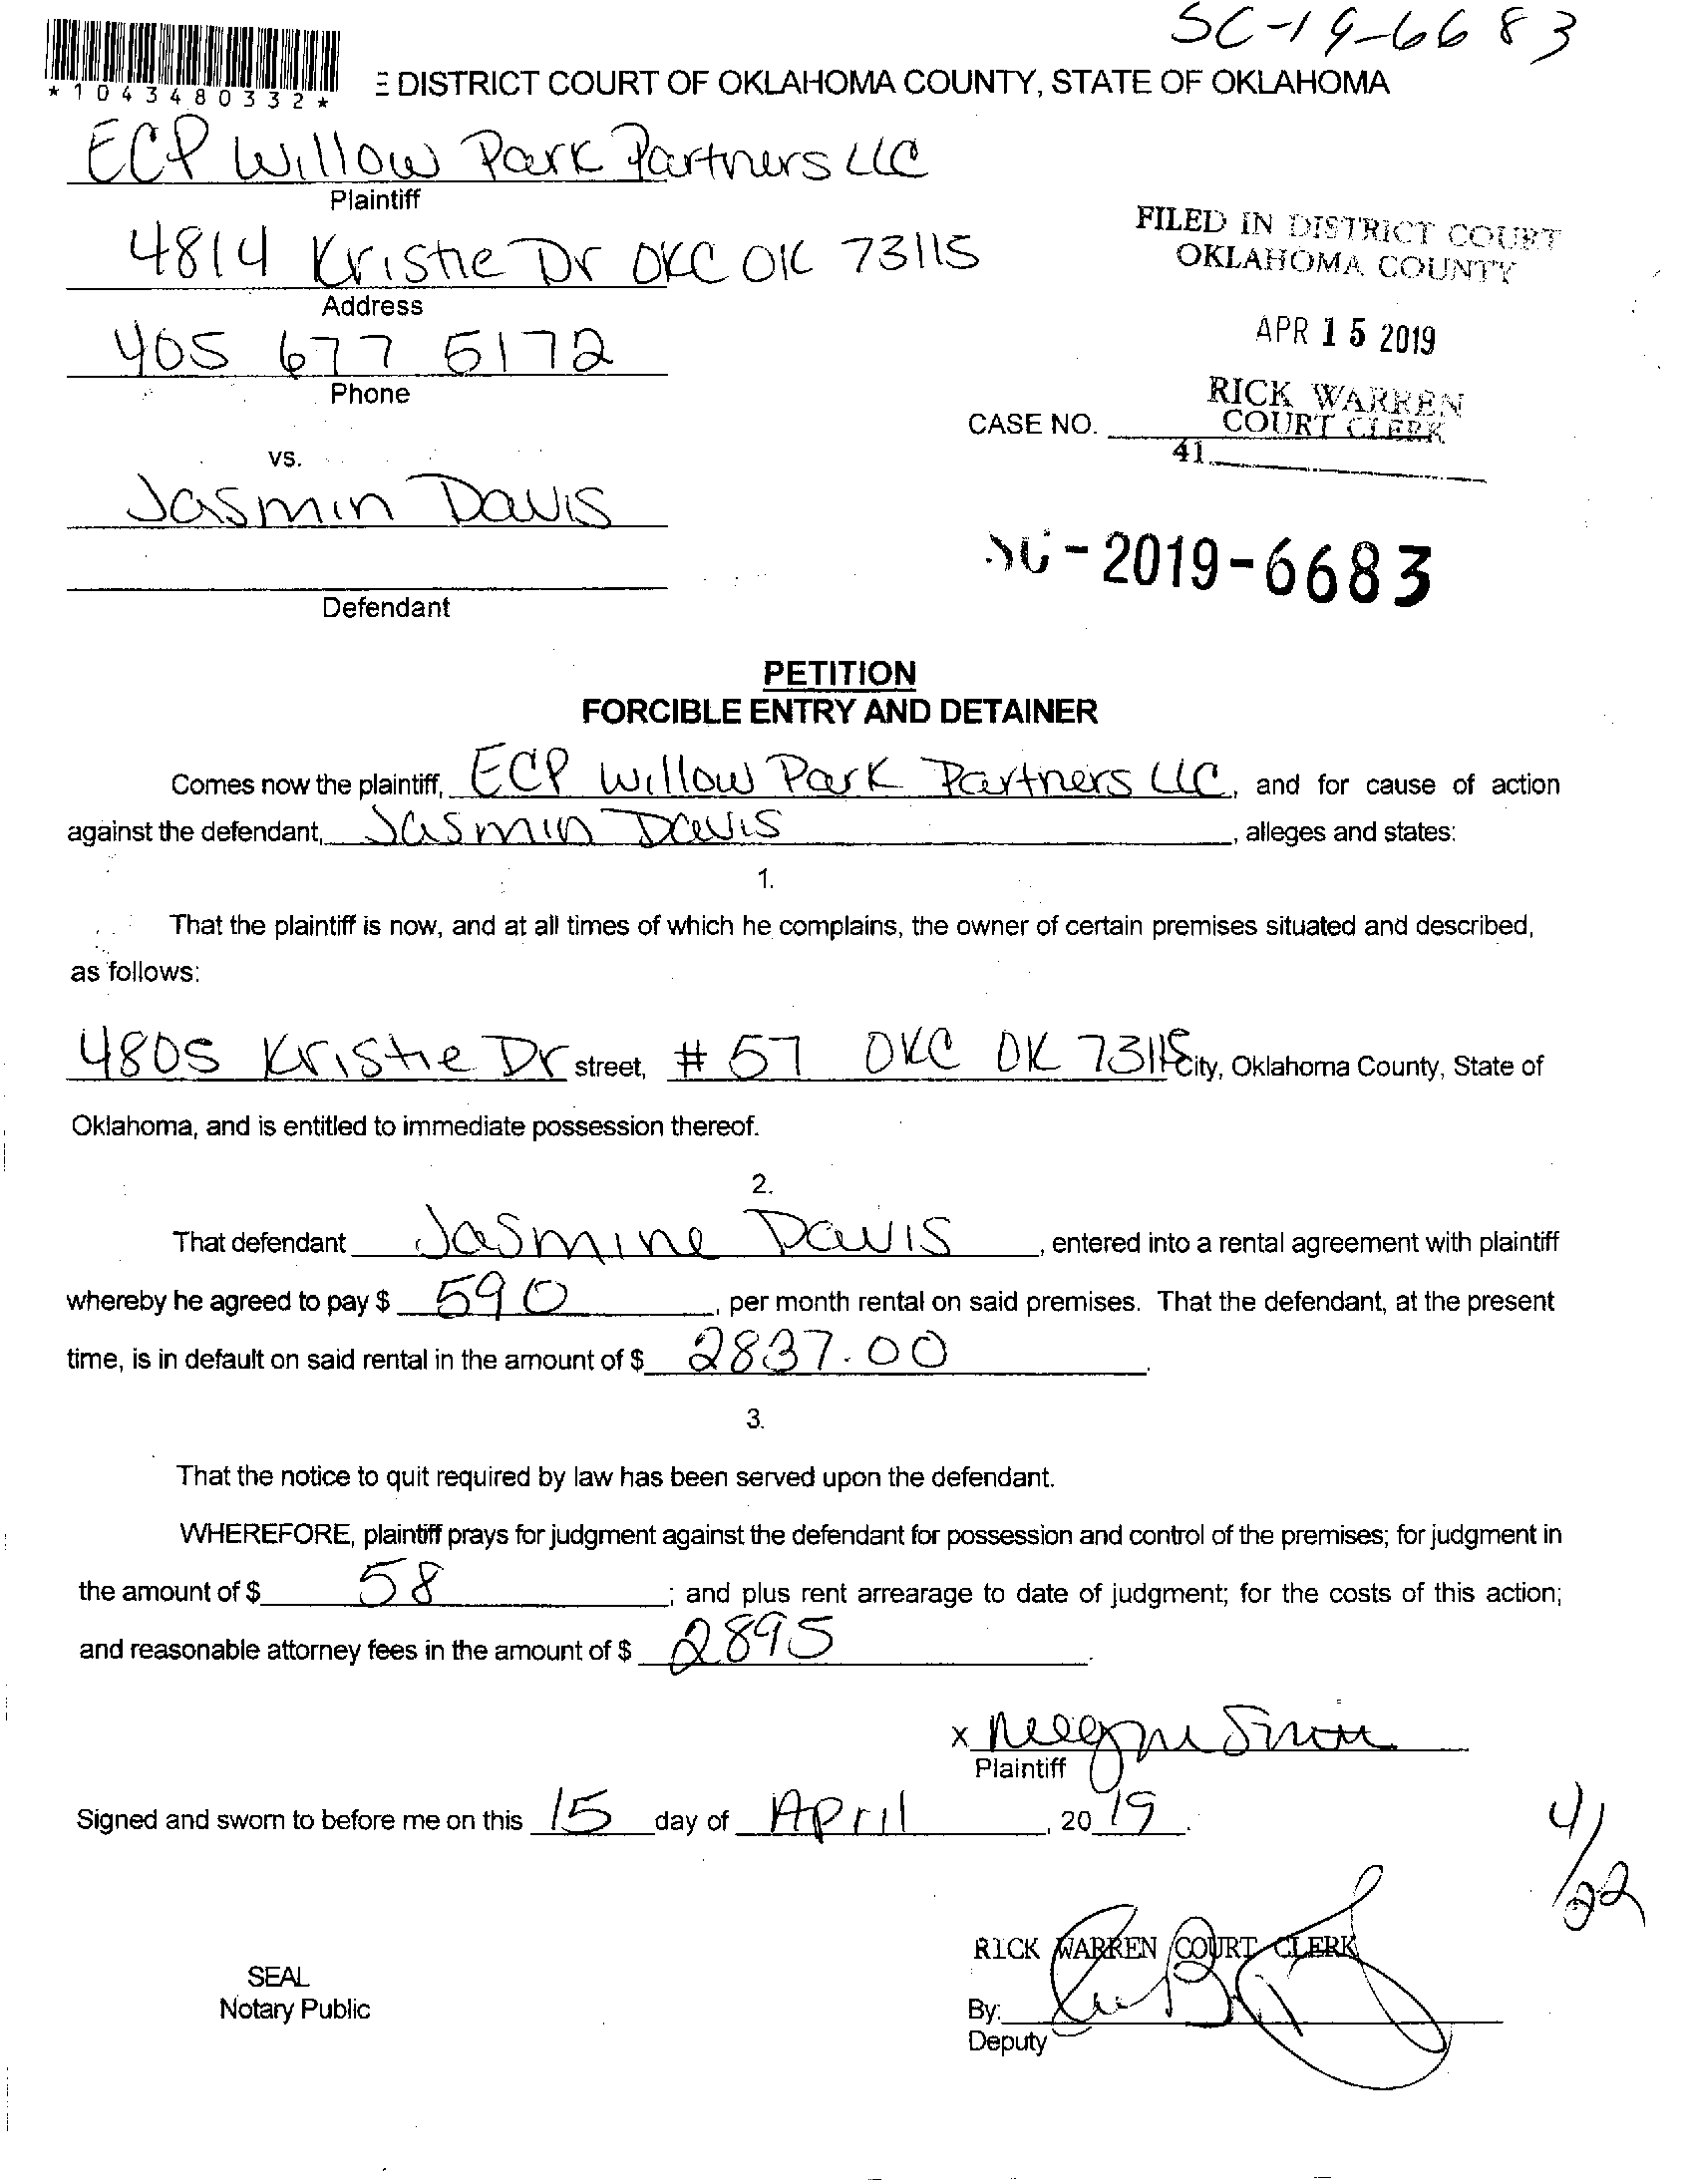 SC-19-6683
*1043480332*
E DISTRICT COURT OF OKLAHOMA COUNTY, STATE OF OKLAHOMA
ECP Willow Park Partners LLC
Plaintiff
4814 Kristie Dr OKC OK 73115
Address
405 677 5172
Phone
FILED IN DISTRICT COURT
OKLAHOMA COUNTY
APR 15 2019
RICK WARREN
COURT CLERK
CASE NO.
41
vs.
Jasmin Davis
Defendant
SC-2019-6683
PETITION
FORCIBLE ENTRY AND DETAINER
Comes now the plaintiff, ECP Willow Park Partners LLC, and for cause of action
against the defendant, Jasmin Davis, alleges and states:
1.
That the plaintiff is now, and at all times of which he complains, the owner of certain premises situated and described,
as follows:
4805 Kristie Dr street, # 57 OKC OK 73115 City, Oklahoma County, State of
Oklahoma, and is entitled to immediate possession thereof.
2.
That defendant Jasmine Davis, entered into a rental agreement with plaintiff
whereby he agreed to pay $ 590, per month rental on said premises. That the defendant, at the present
time, is in default on said rental in the amount of $ 2837.00.
3.
That the notice to quit required by law has been served upon the defendant.
WHEREFORE, plaintiff prays for judgment against the defendant for possession and control of the premises; for judgment in
the amount of $ 58; and plus rent arrearage to date of judgment; for the costs of this action;
and reasonable attorney fees in the amount of $ 2895.
x
Plaintiff
Signed and sworn to before me on this 15 day of April, 20 19.
4/22
RICK WARREN COURT CLERK
SEAL
Notary Public
By:
Deputy